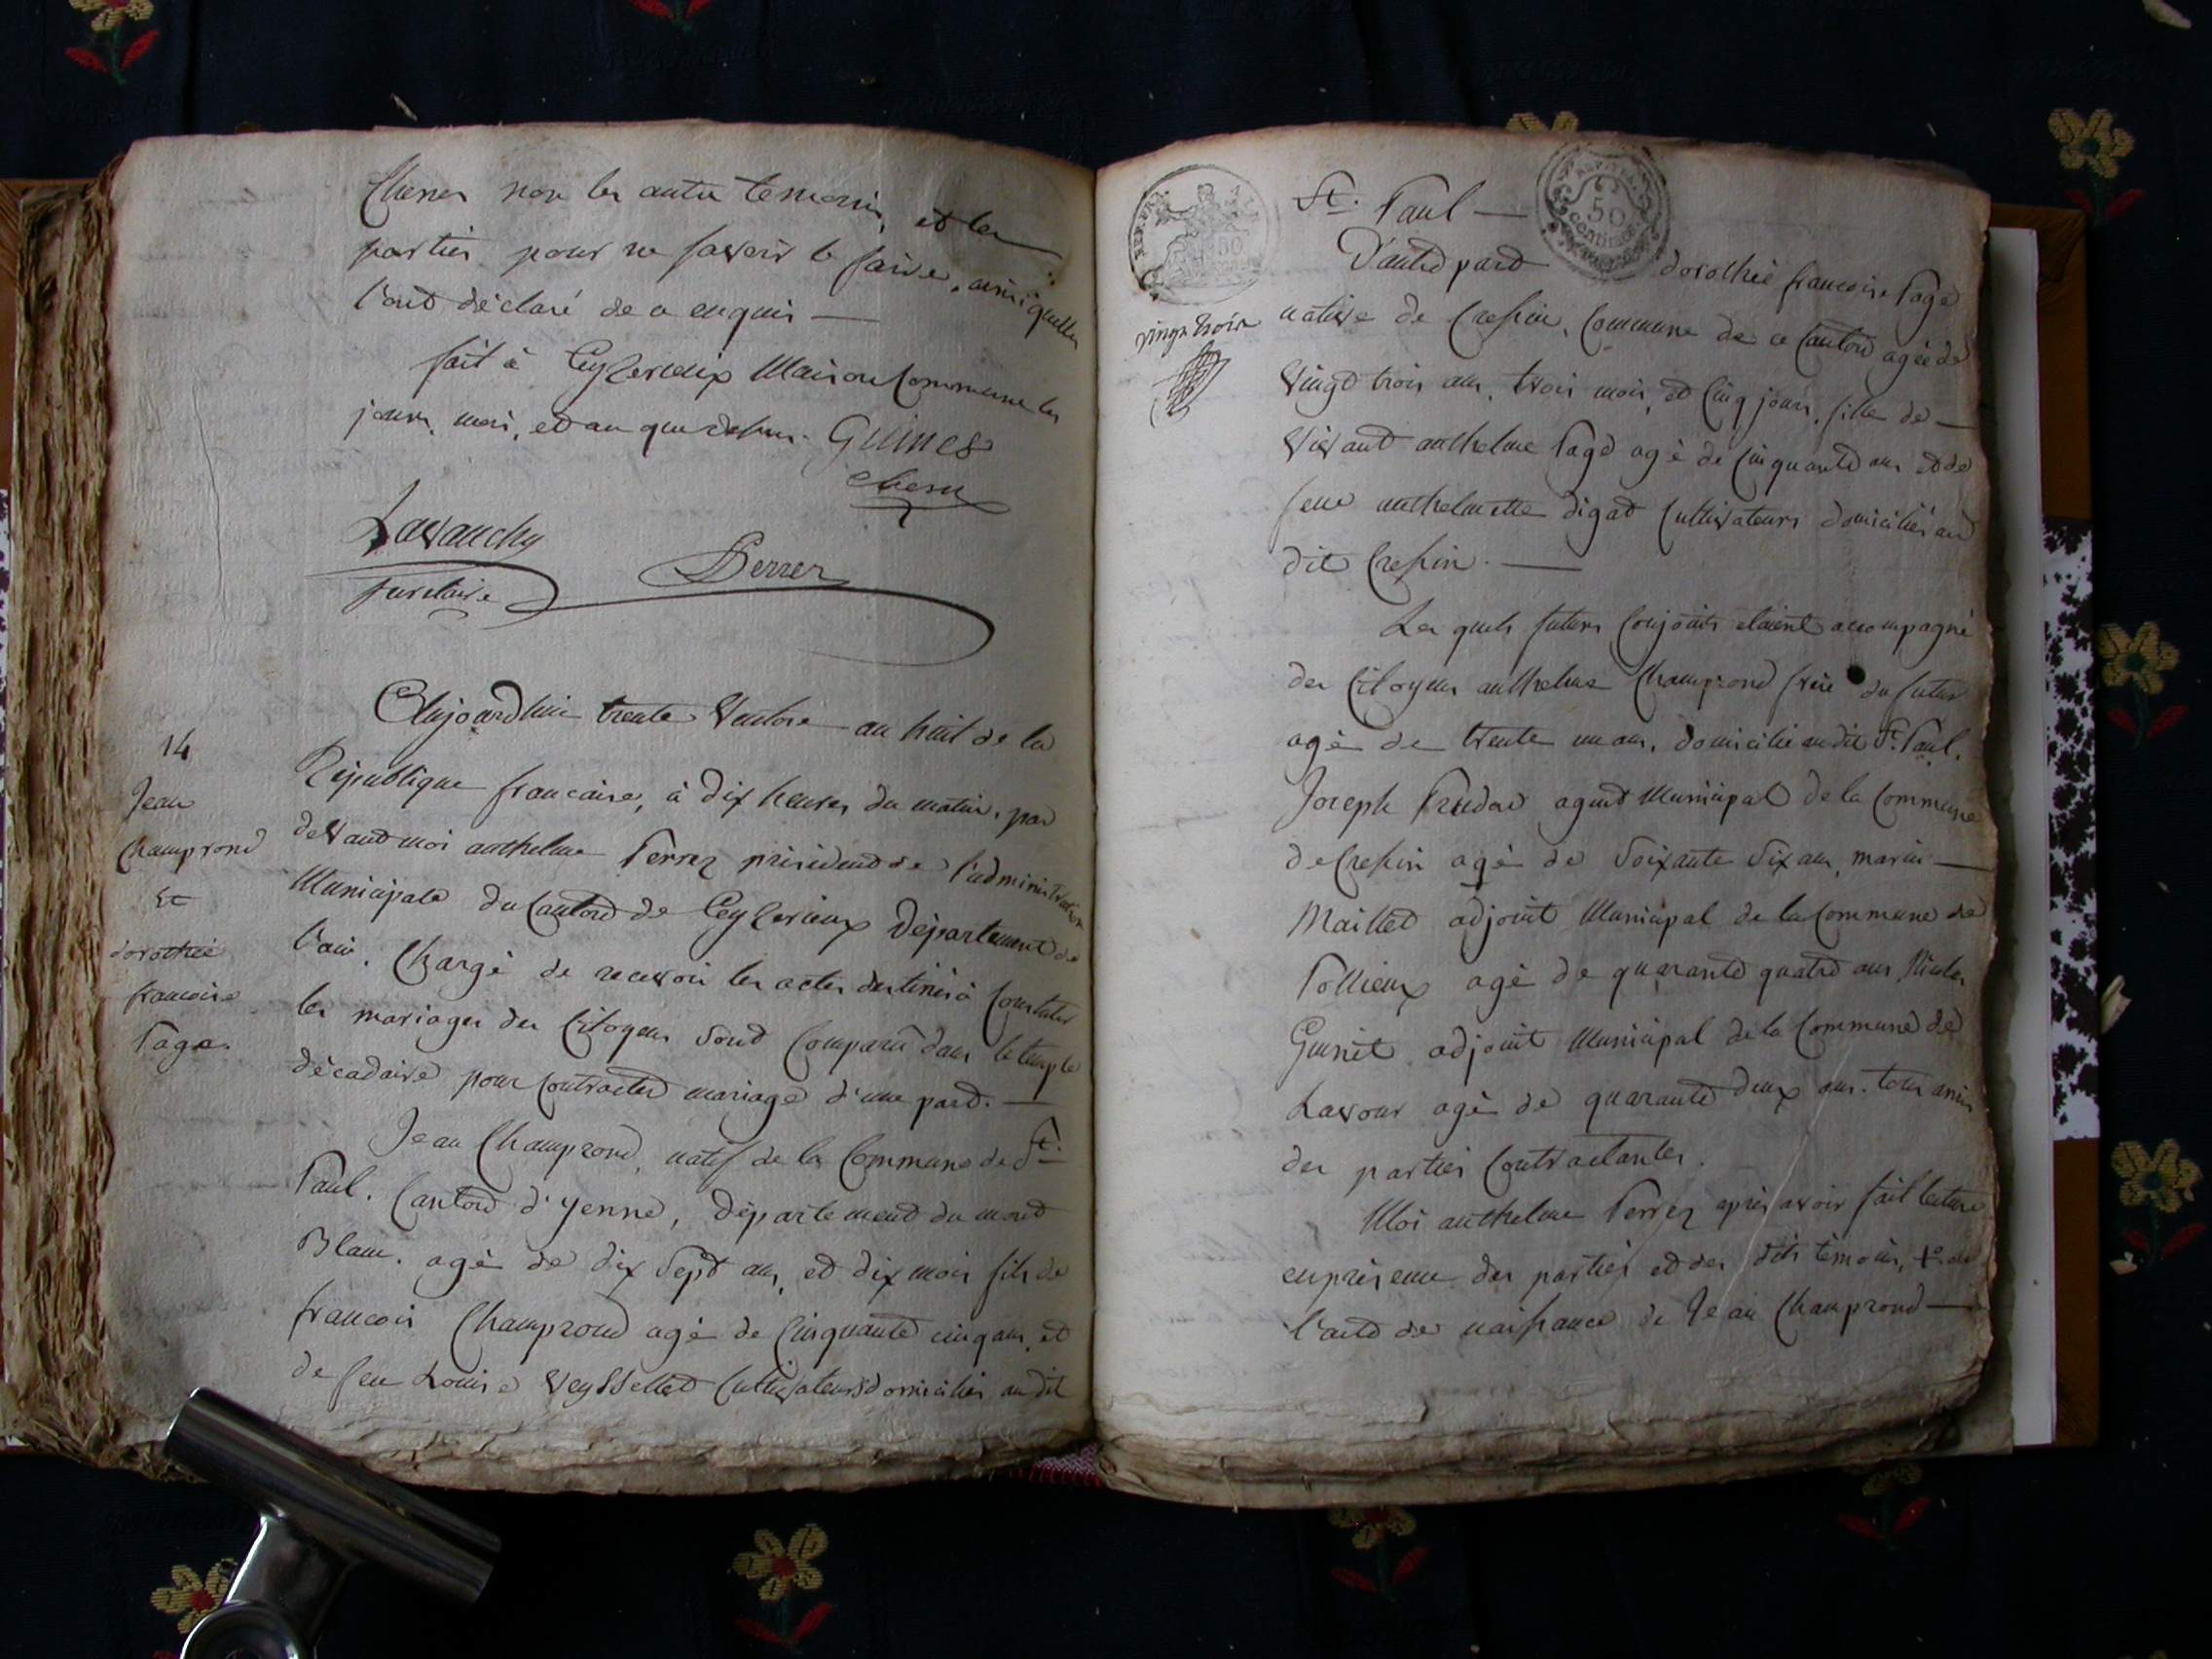 Chenes non les autre temoins, et les
parties pour ne savoir le faire, ainsi quelles
l'ont déclaré de ce enquis —
fait à Ceyzerieux Maison Commune les
jours, mois, et an que dessus. Guines
chesne
Lavanchy
Perrer
secretaire
14
Jean
Champrond
et
dorothée
francoise
Page.
Aujourdhui trente Ventose an huit de la
République francaise, à dix heures du matin, par
devant moi anthelme Perrez président de l'administration
Municipale du Canton de Ceyzerieux Département de
l'ain. Chargé de recevoir les actes destinés à Constater
les mariages des Citoyens sont Comparu dans le temple
décadaire pour Contracter mariage d'une part. —
Jean Champrond, natif de la Commune de St.
Paul. Canton d'yenne, Département du mont
Blanc. agé de dix sept ans, et dix mois fils de
francois Champrond agé de Cinquante cinq ans, et
de feu Louise Veyssellet Cultivateurs domiciliés au dit
vingt trois
REP. FRA.
50
St. Paul —
50
centimes
D'autre part dorothée francoise Page
native de Cressin, Commune de ce Canton agée de
Vingt trois ans, trois mois, et Cinq jours, fille de —
Vivant anthelme Page agé de Cinquante ans et de
feue anthelmette digat Cultivateurs domiciliés au
dit Cressin. —
Les quels futurs Conjoints etaient accompagné
des Citoyens anthelme Champrond frère du futur
agé de trente un ans, domicilié audit St. Paul.
Joseph agent Municipal de la Commune
de Cressin agé de Soixante Six ans, marin —
Maillet adjoint Municipal de la Commune de
Pollieux agé de quarante quatre ans, Nicolas
Guinet adjoint Municipal de la Commune de
Lavour agé de quarante deux ans. tous amis
des parties Contractantes.
Moi anthelme Perrez après avoir fait lecture
en présence des parties et des dits témoins, 1° de
l'acte de naissance de Jean Champrond —